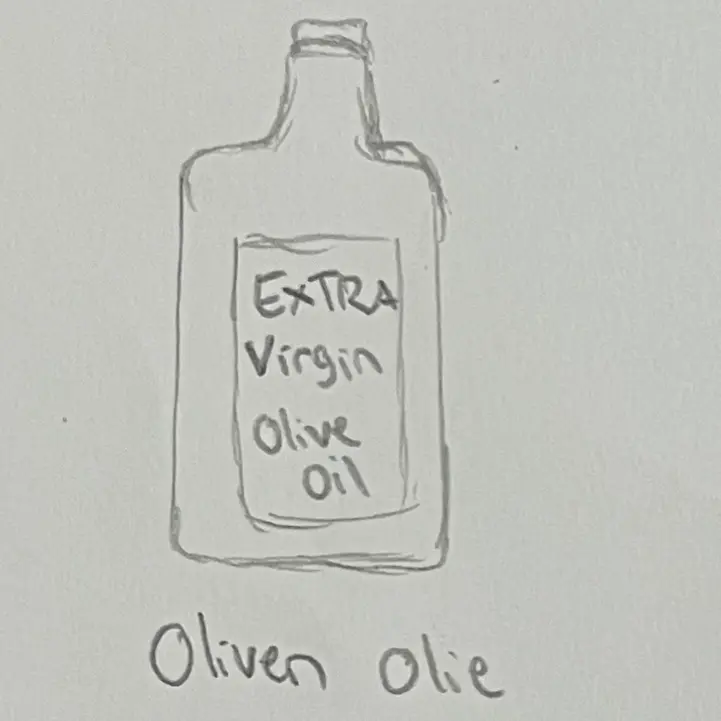 EXTRA
Virgin
Olive
Oil
Oliven Olie